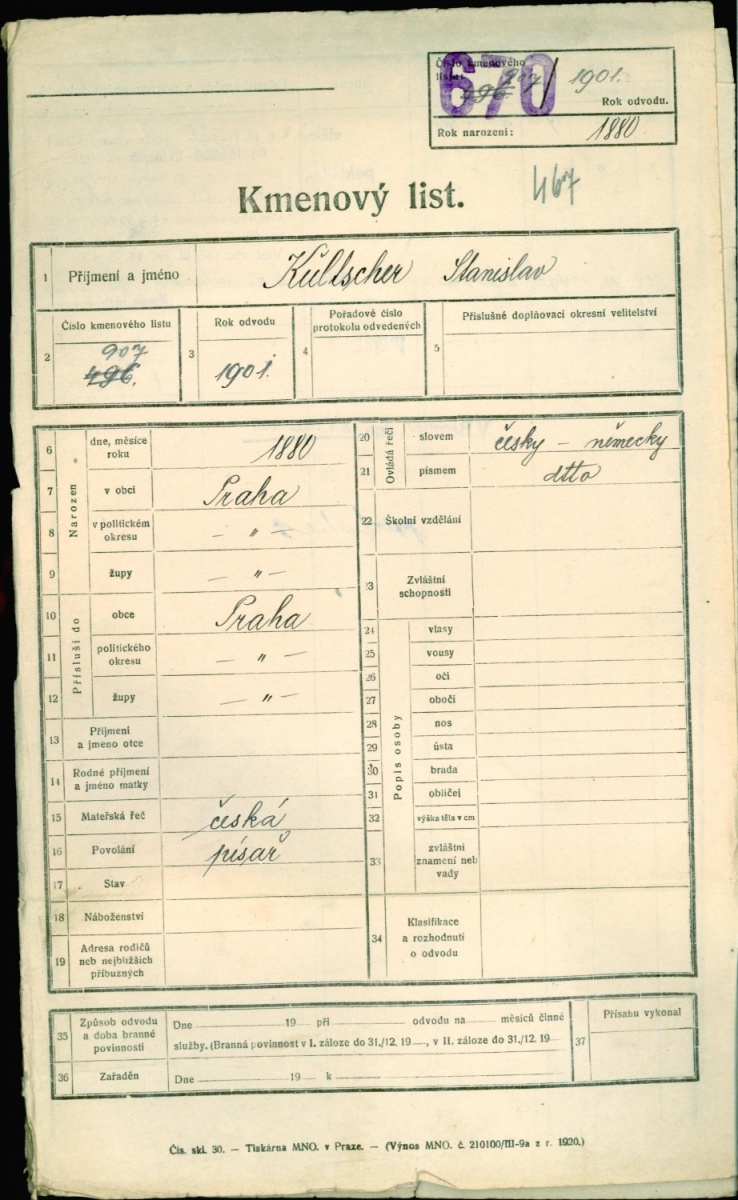 Číslo kmenového
listu:
670
496. 907 / 1901.
Rok odvodu.
Rok narození: 1880
Kmenový list.
467
1 Příjmení a jméno Kullscher Stanislav
2 Číslo kmenového listu 907 496.
3 Rok odvodu 1901.
4 Pořadové číslo
protokolu odvedených
5 Příslušné doplňovací okresní velitelství
Narozen
6 dne, měsíce
roku 1880
7 v obci Praha
8 v politickém
okresu — " —
9 župy — " —
Přísluší do
10 obce Praha
11 politického
okresu — " —
12 župy — " —
13 Příjmení
a jmeno otce
14 Rodné příjmení
a jméno matky
15 Mateřská řeč česká
16 Povolání písař
17 Stav
18 Náboženství
19 Adresa rodičů
neb nejbližších
příbuzných
Ovládá řečí
20 slovem česky – německy
21 písmem dtto
22 Školní vzdělání
23 Zvláštní
schopnosti
Popis osoby
24 vlasy
25 vousy
26 oči
27 obočí
28 nos
29 ústa
30 brada
31 obličej
32 výška těla v cm
33 zvláštní
znamení neb
vady
34 Klasifikace
a rozhodnutí
o odvodu
35 Způsob odvodu
a doba branné
povinnosti
Dne 19 při odvodu na měsíců činné
služby. (Branná povinnost v I. záloze do 31./12. 19 , v II. záloze do 31./12. 19
36 Zařaděn Dne 19 k
37 Přísahu vykonal
Čís. skl. 30. — Tiskárna MNO. v Praze. — (Výnos MNO. č. 210100/III-9a z r. 1920.)